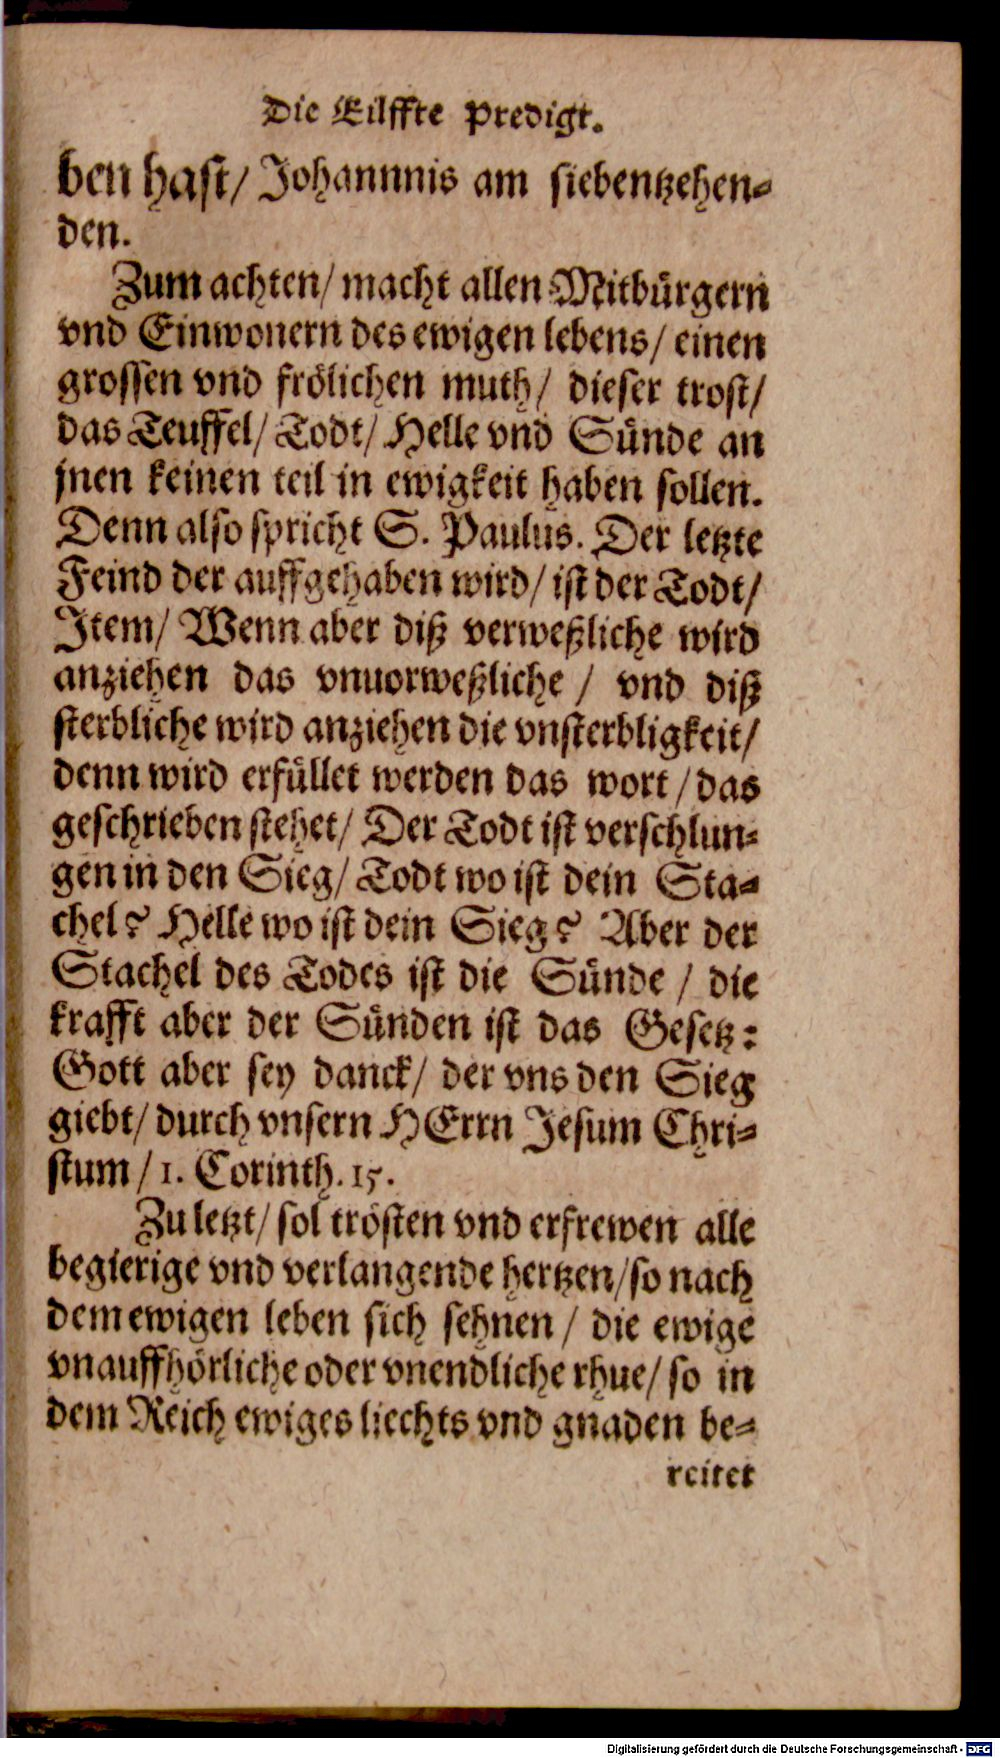 Die Eilffte Predigt.
ben hast/ Johannnis am siebentzehen-
den.
Zum achten/ macht allen Mitbürgern
vnd Einwonern des ewigen lebens/ einen
grossen vnd frölichen muth/ dieser trost/
das Teuffel/ Todt/ Helle vnd Sünde an
jnen keinen teil in ewigkeit haben sollen.
Denn also spricht S. Paulus. Der letzte
Feind der auffgehaben wird/ ist der Todt/
Item/ Wenn aber diß verweßliche wird
anziehen das vnuorweßliche / vnd diß
sterbliche wird anziehen die vnsterbligkeit/
denn wird erfüllet werden das wort / das
geschrieben stehet/ Der Todt ist verschlun-
gen in den Sieg/ Todt wo ist dein Sta-
chel? Helle wo ist dein Sieg? Aber der
Stachel des Todes ist die Sünde / die
krafft aber der Sünden ist das Gesetz:
Gott aber sey danck/ der vns den Sieg
giebt/ durch vnsern HErrn Jesum Chri-
stum / 1. Corinth. 15.
Zu letzt/ sol trösten vnd erfrewen alle
begierige vnd verlangende hertzen/ so nach
dem ewigen leben sich sehnen / die ewige
vnauffhörliche oder vnendliche rhue/ so in
dem Reich ewiges liechts vnd gnaden be-
reitet
Digitalisierung gefördert durch die Deutsche Forschungsgemeinschaft - DFG